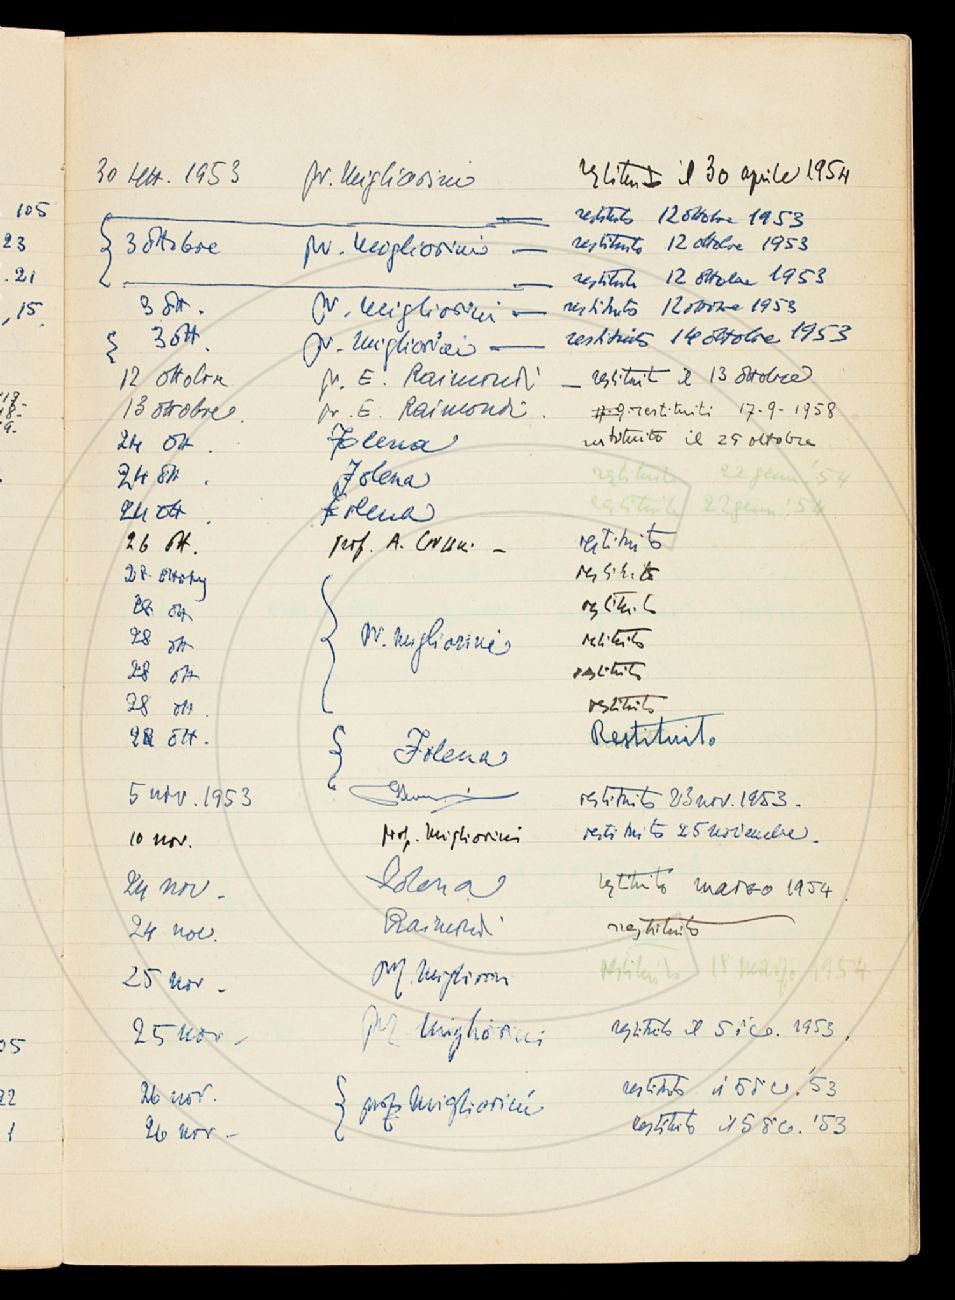 30 sett. 1953 pr. Migliorini restituito il 30 aprile 1954
105 restituito 12 ottobre 1953
23 3 ottobre pr. Migliorini — restituito 12 ottobre 1953
21 restituito 12 ottobre 1953
15. 3 ott. pr. Migliorini — restituito 12 ottobre 1953
3 ott. pr. Migliorini — restituito 14 ottobre 1953
12 ottobre pr. E. Raimondi — restituito il 13 ottobre
13 ottobre. pr. E. Raimondi. restituiti 17-9-1958
24 ott. Folena restituito il 29 ottobre
24 ott. Folena restituito 22 genn. '54
24 ott. Folena restituito 22 genn. '54
26 ott. prof. A. restituito
28 ottobre restituito
28 ott restituito
28 ott pr. Migliorini restituito
28 ott restituito
28 ott. restituito
28 ott. Folena Restituito
5 nov. 1953 restituito 23 nov. 1953.
10 nov. prof. Migliorini restituito 25 novembre.
24 nov. Folena restituito marzo 1954.
24 nov. Raimondi restituito
25 nov. prof. Migliorini restituito 18 marzo 1954
05 25 nov. prof. Migliorini restituito il 5 dic. 1953.
22 26 nov. prof. Migliorini restituito il 5 dic. '53
1 26 nov. restituito il 5 dic. '53